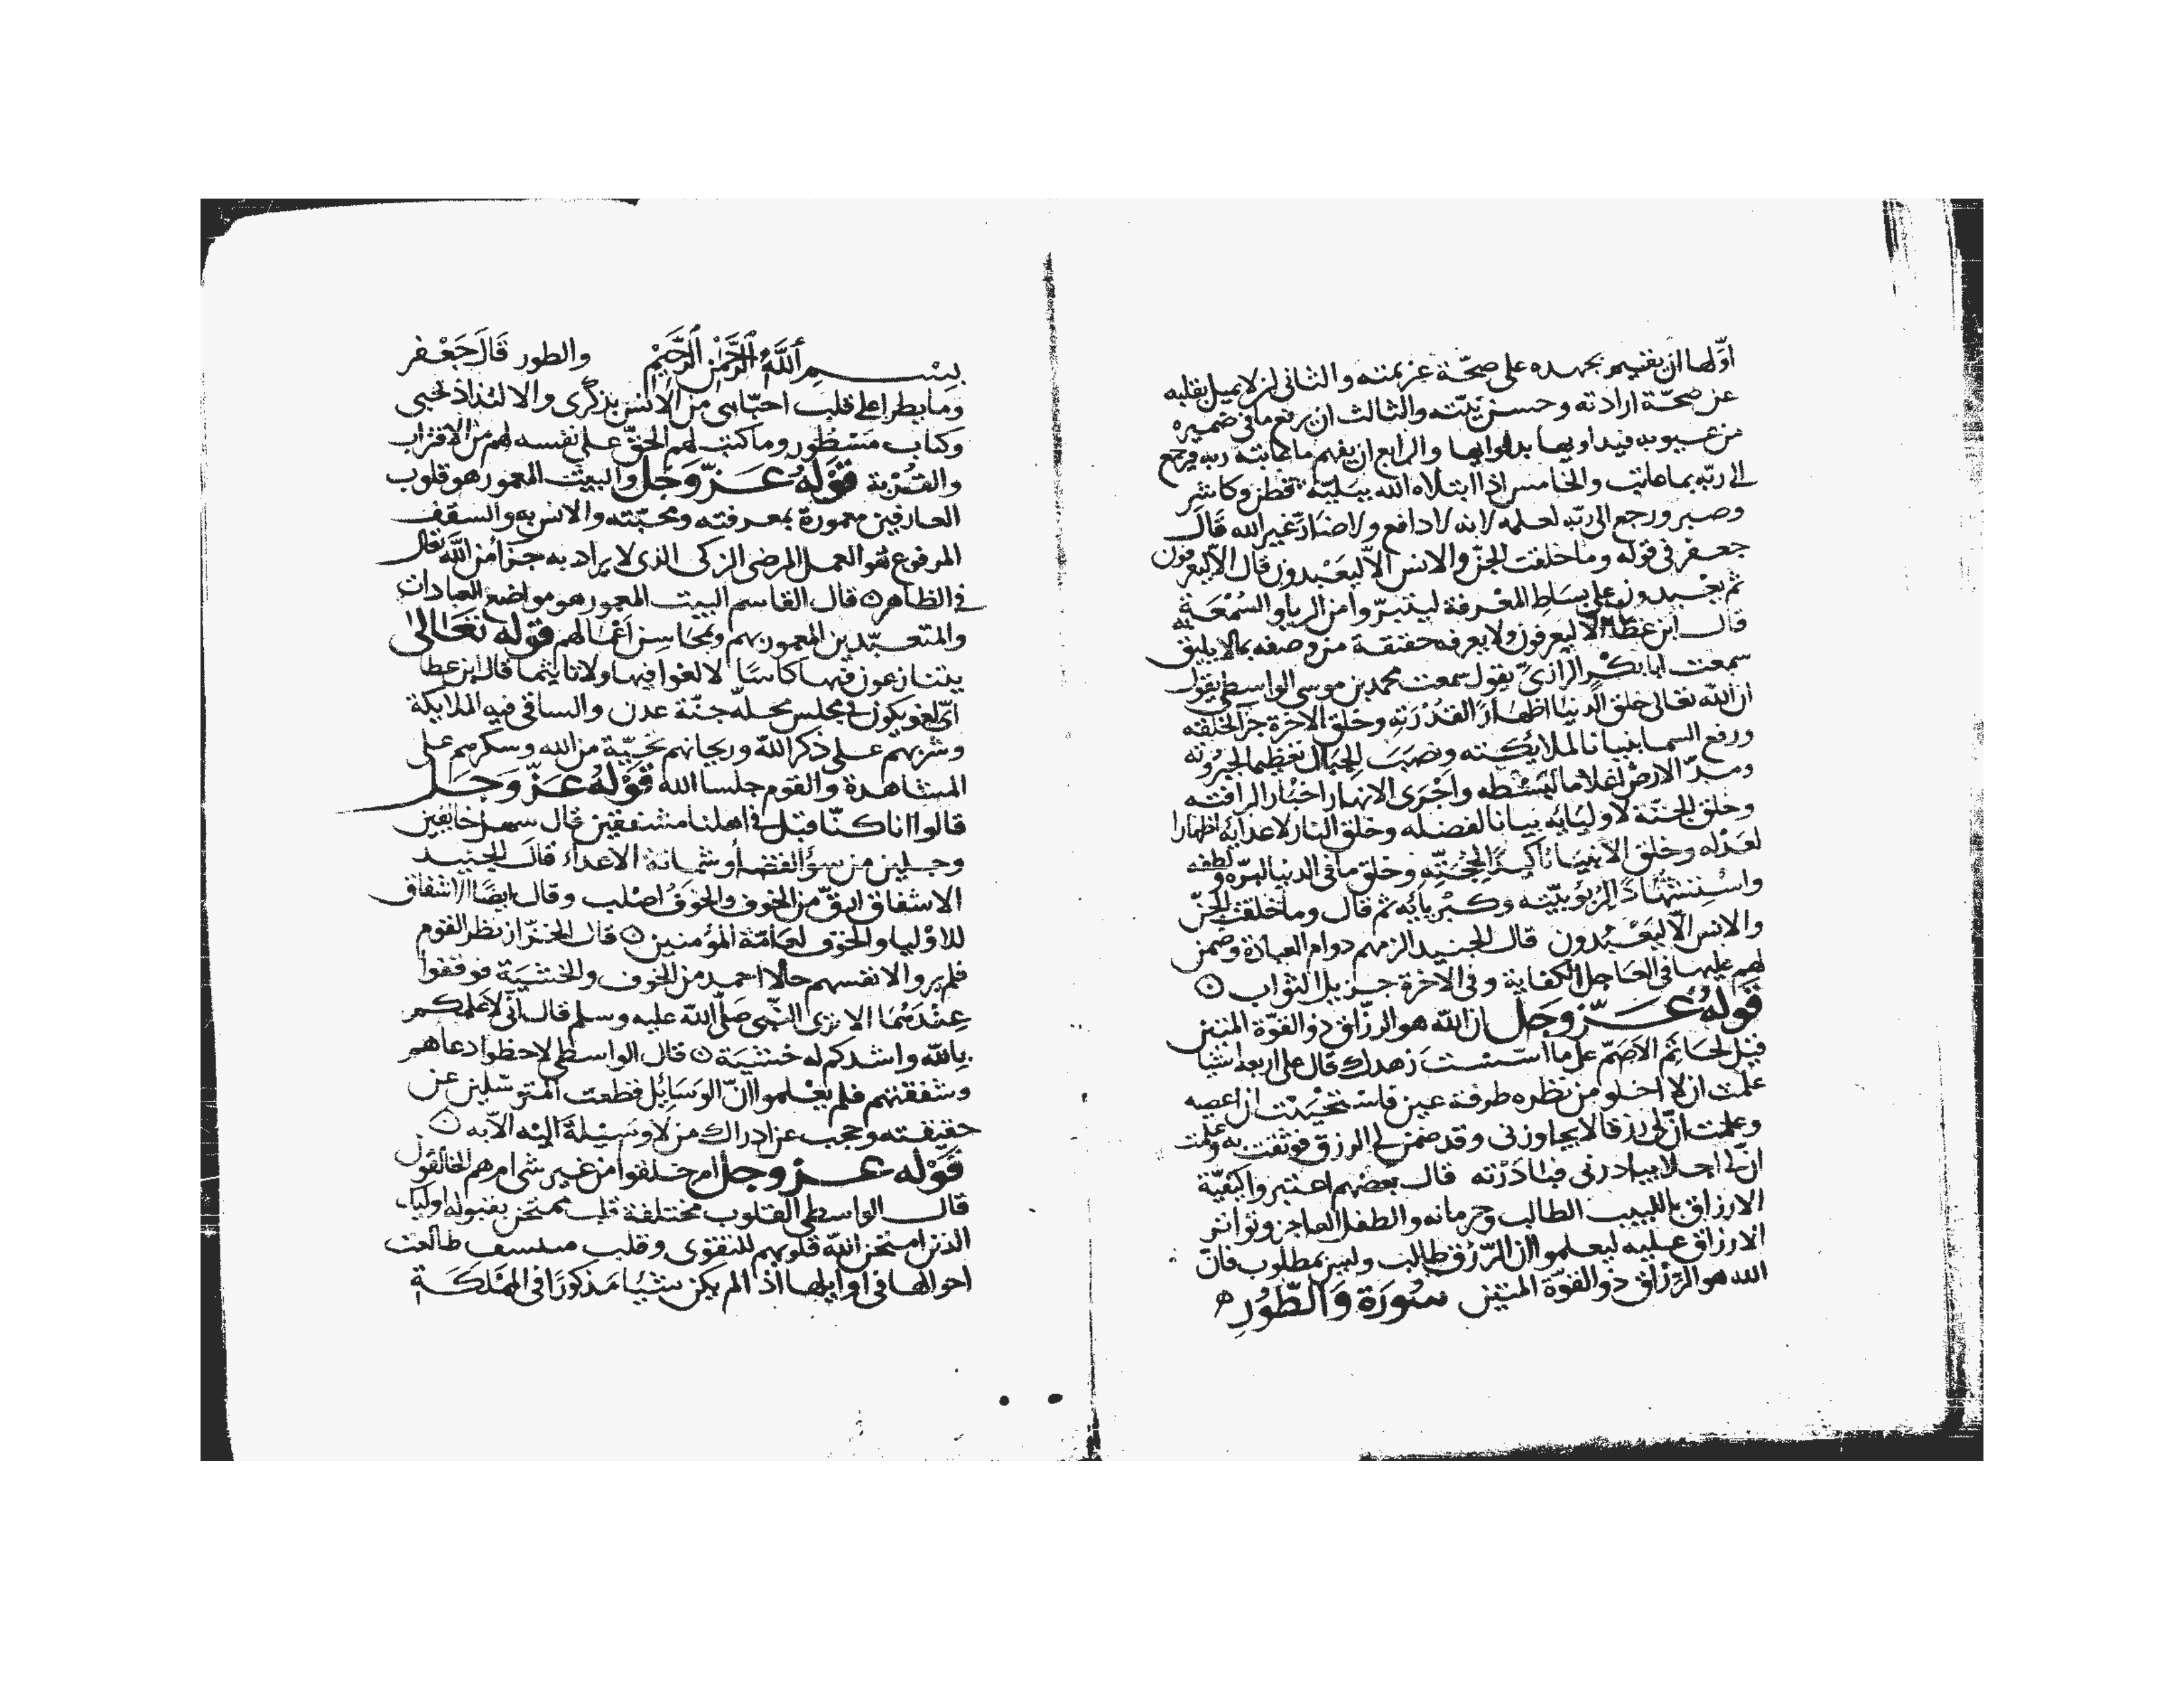 أوّلها ان يقيم بجهده على صحّة عزيمته والثاني ان لا يميل بقلبه
عن صحّة ارادته وحسن نيّته والثالث ان يرفع ما في ضميره
من عيوبه فيداويها بدوايها والرابع ان يفهم ما عاتبه ربه فيرجع
الى ربّه بما عاتب والخامس اذا ابتلاه الله ببليّة فطن وكاشر
وصبر ورجع الى ربّه لعلمه لانه لا دافع ولا ضارّ غير الله قال
جعفر في قوله وما خلقت الجنّ والانس الّا ليعبدون قال الّا ليعرفون
ثم يعبدون على بساط المعرفة ليتبرّوا من الريا والسُّمْعَة
قال ابن عطا الّا ليعرفون ولا يعرفه حقيقة من وصفه بما لا يليق به
سمعت ابا بكر الرازيّ يقول سمعت محمد بن موسى الواسطي يقول
ان الله تعالى خلق الدنيا اظهارًا لقُدْرَتِه وخلق الاخرة جزا لخلقه
ورفع السما بنيانا لملائكته ونصَبَ الجبال تعظيما لجبروته
ومدّ الارض اعلاما لبَسْطه واَجْرى الانهار اخبارا لرافته
وخلق الجنّة لاوليآيه بيانا لفضله وخلق النار لاعدآيه اظهارا
لعَدْله وخلق الانبيا تاكيدًا لحجّته وخلق ما في الدنيا لبرّه ولطفه
واسْتِشْهَادًا لرُبُوبيّته وكبريآئه ثم قال وما خلقت الجنّ
والانس الّا ليَعْبُدون قال الجنيد الزمهم دوام العبادة وضمن
لهم عليها في العاجل الكفاية وفي الآخرة جزيل الثواب
قَوْلُهُ عَزَّ وَجَلّ ان الله هو الرزّاق ذو القوّة المتين
قيل لحاتم الاَصَمّ على ما اسّستَ زهدك قال على اربعة اشيا
علمت ان لا اخلو من نظره طرفة عين فاستَحْيَيْت ان اعصيه
وعلمت انّ لي رزقا لا يجاوزني وقد ضمن لي الرزق فوثقت به وعلمت
انّ لي اجلا يبادرني فبَادَرْته قال بعضهم اعتبروا كيفيّة
الارزاق باللبيب الطالب وحرمانه والطفل العاجز وتواتر
الارزاق عليه ليعلموا ان الرّزق طالب وليس بمطلوب فانّ
الله هو الرّزّاق ذو القوّة المتين سُورَة وَالطُّورِ
بِسْمِ اللَّهِ الرَّحْمنِ الرَّحِيمِ والطور قَالَ جَعْفر
وما يطرا على قلب احبّايى من الاُنْس بذكرى والالتذاذ لحبى
وكتاب مَسْطُور وما كتب لهم الحقّ على نفسه لهم من الاقتراب
والقُرْبة قَوْلُهُ عَزَّ وَجَلّ والبيت المعمور هو قلوب
العارفين معمورة بمعرفته ومحبّته والانس به والسقف
المرفوع هو العمل المرضي الزكى الذى لا يراد به جزآء من الله تعالى
في الظاهر قال القاسم البيت المعمور هو مواضع العبادات
والمتعبّدين المعمور بهم وبمحاسن اعمالهم قوله تعالى
يتنازعون فيها كاسًا لا لغوا فيها ولا تاثيما قال ابن عطا
اىّ لغو يكون في مجلس محلّه جنّة عدن والساقي فيه الملايكة
وشربهم على ذكر الله وريحانهم تحيّة من الله وسكرهم على
المشاهدة والقوم جلسا الله قَوْلُهُ عَزَّ وَجَلَّ
قالوا انا كنّا قبل في اهلنا مشفقين قال سهل خايفين
وجلين من سوٓ القضا وشماتة الاعداء قال الجنيد
الاشفاق ارقّ من الخوف والخوف اصلب وقال ايضًا الاشفاق
للاوليا والخوف لعامّة المؤمنين قال الخرّاز نظر القوم
فلم يروا لانفسهم حالا احمد من الخوف والخشية فوقفوا
عِنْدهُمَا الا ترى النّبي صَلّى الله عليه وسلم قال انّي لاَعلمكم
بالله واشدكم له خشيَة قال الواسطي لاحظوا دعاهم
وشفقتهم فلم يعْلموا انّ الوَسَائِل قطعت المتوسّلين عن
حقيقته وحجب عن ادراك من لا وَسِيْلةَ اليْه الّا به
قَوْلُه عَزّ وجل ام خلقوا من غير شى ام هم الخالقون
قال الواسطي القلوب مختلفة قلب ممتحن بقبوله اوليك
الذين امتحن الله قلوبهم للتقوى وقلب طالعت
احوالها في اوايلها اذ لم يكن شَيْئًا مَذكورًا في المَمْلكَة